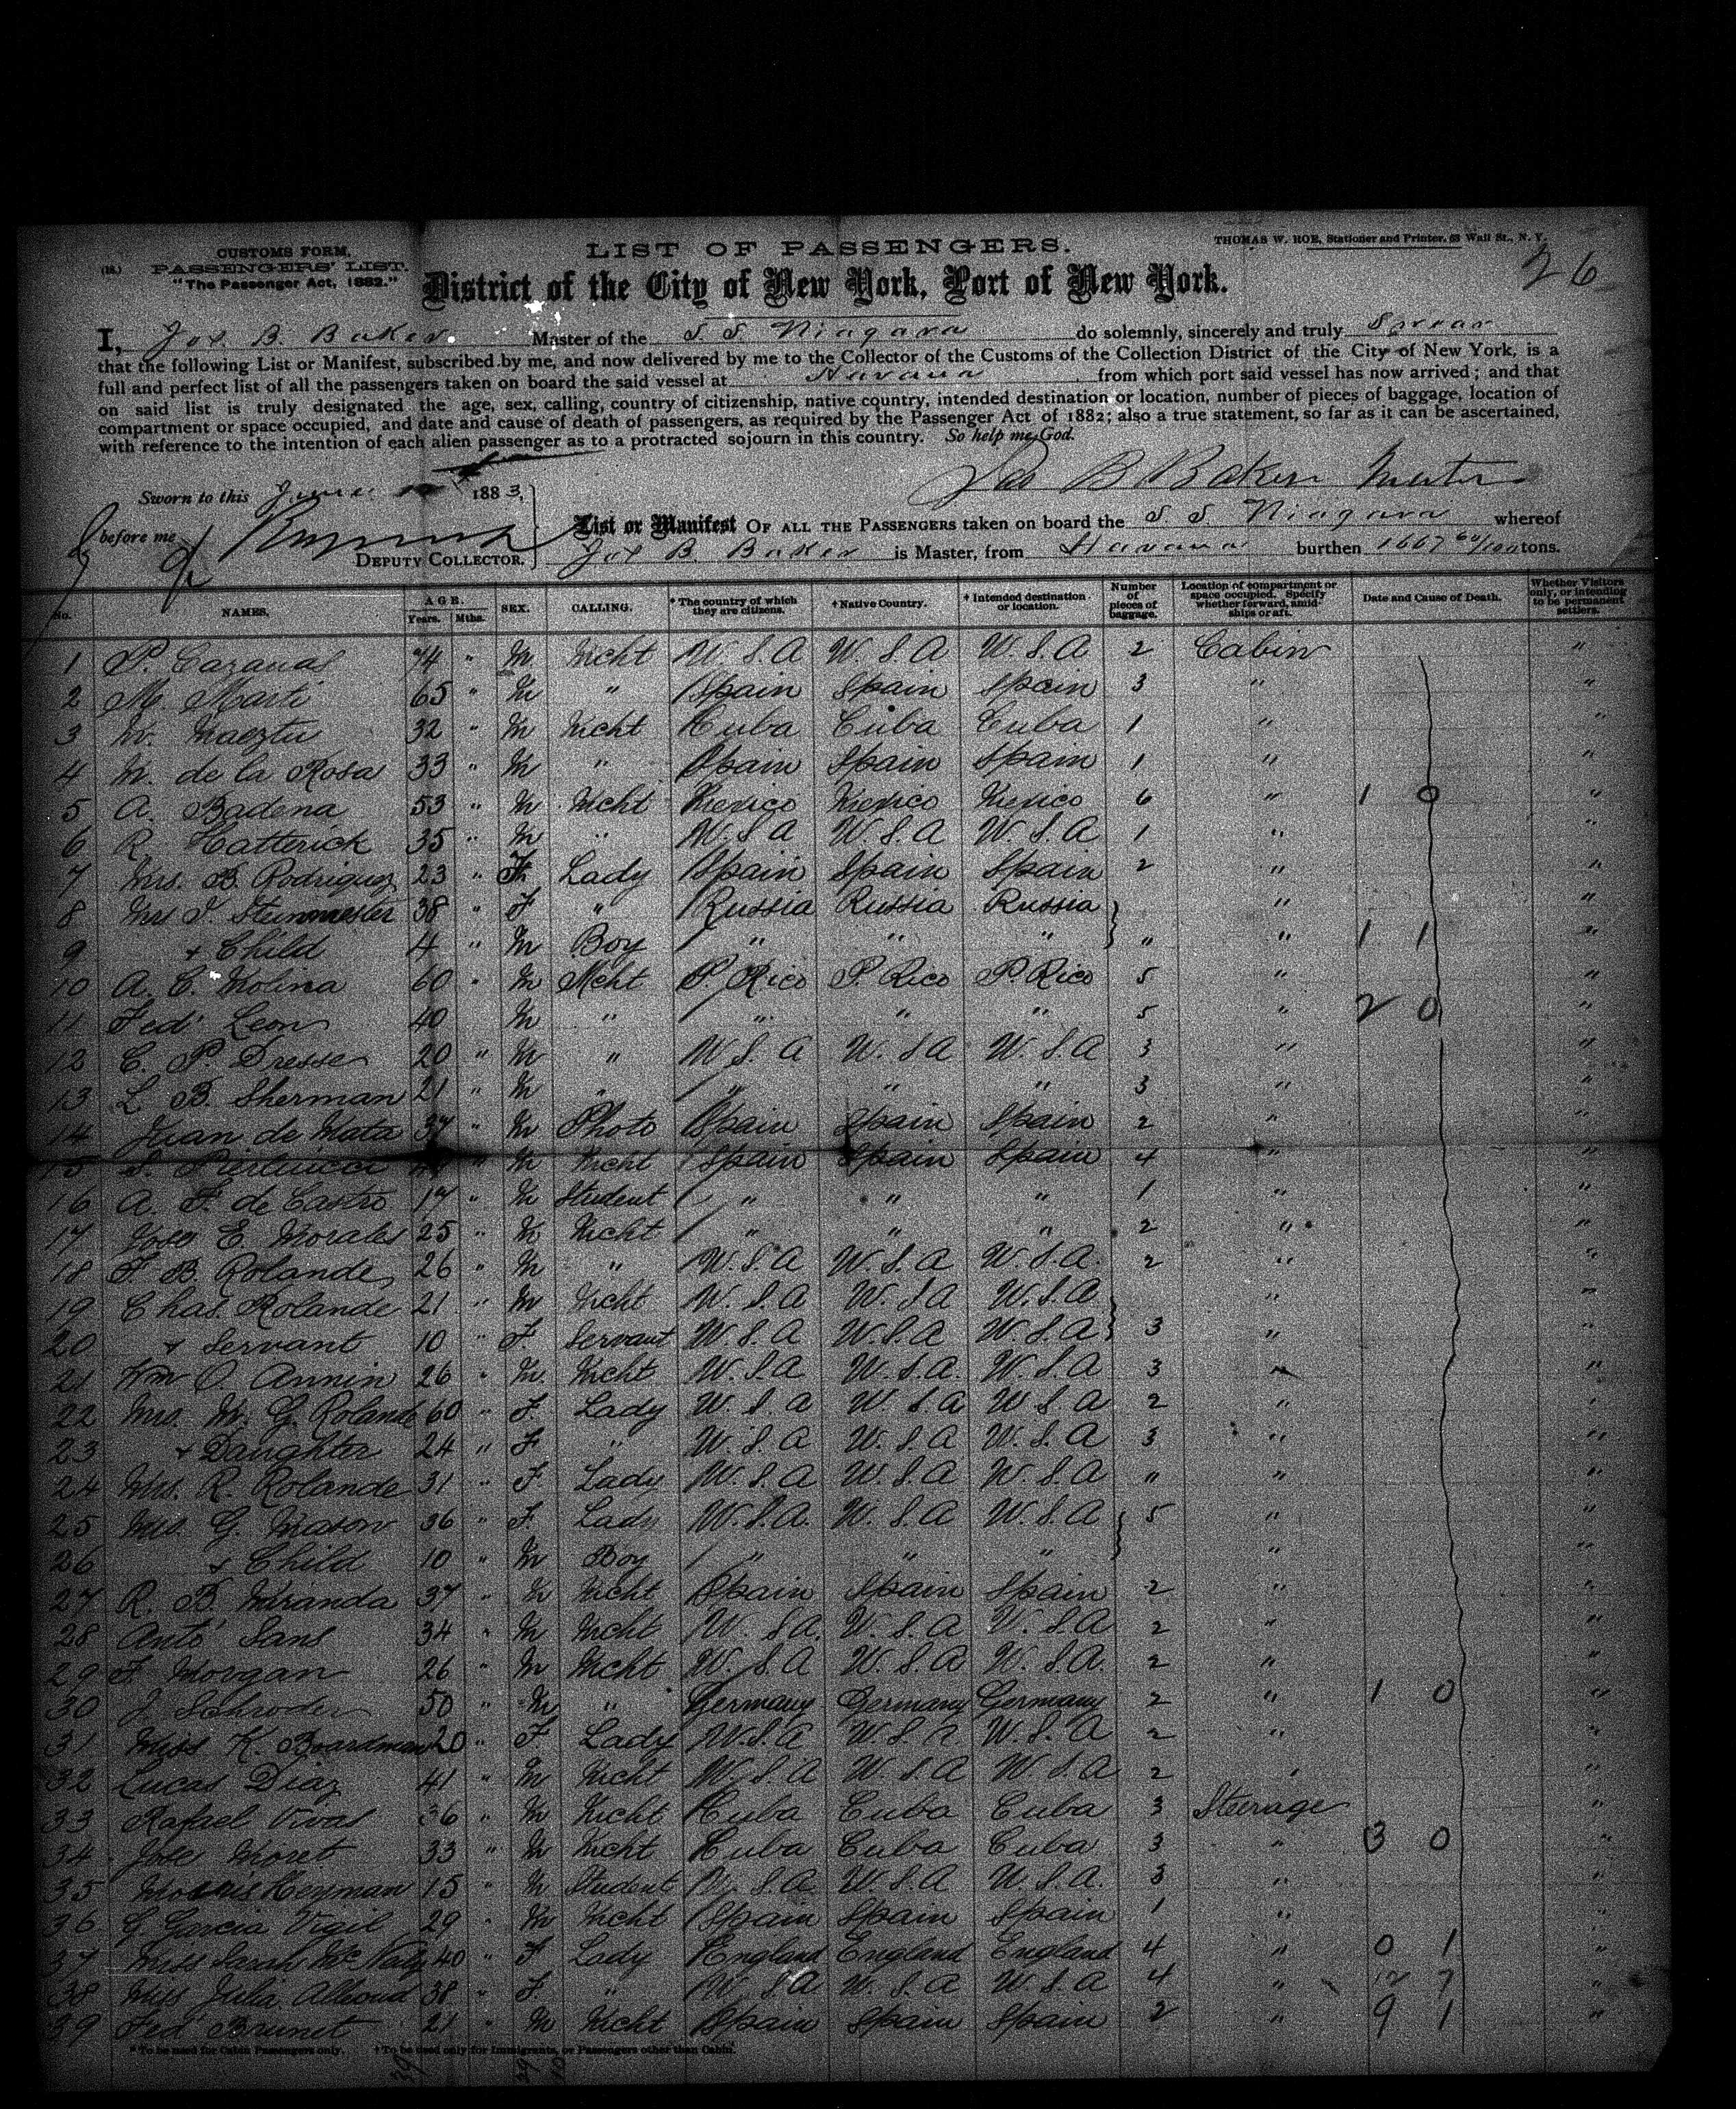 CUSTOMS FORM.
(18.) PASSENGERS' LIST.
"The Passenger Act, 1882."
LIST OF PASSENGERS.
THOMAS W. ROE, Stationer and Printer, 63 Wall St., N. Y.
26
District of the City of New York, Port of New York.
I, Jas. B. Baker Master of the S. S. Niagara do solemnly, sincerely and truly Swear
that the following List or Manifest, subscribed by me, and now delivered by me to the Collector of the Customs of the Collection District of the City of New York, is a
full and perfect list of all the passengers taken on board the said vessel at Havana from which port said vessel has now arrived; and that
on said list is truly designated the age, sex, calling, country of citizenship, native country, intended destination or location, number of pieces of baggage, location of
compartment or space occupied, and date and cause of death of passengers, as required by the Passenger Act of 1882; also a true statement, so far as it can be ascertained,
with reference to the intention of each alien passenger as to a protracted sojourn in this country. So help me God.
Jas B Baker Master
Sworn to this June 1883,
before me
DEPUTY COLLECTOR.
List or Manifest OF ALL THE PASSENGERS taken on board the S. S. Niagara whereof
Jas B. Baker is Master, from Havana burthen 1667 60/100 tons.
No. NAMES. AGE. Years. Mths. SEX. CALLING. * The country of which they are citizens. † Native Country. † Intended destination or location. Number of pieces of baggage. Location of compartment or space occupied. Specify whether forward, amidships or aft. Date and Cause of Death. Whether Visitors only, or intending to be permanent settlers.
1 P. Cazanas 44 " M Mcht U.S.A U.S.A U.S.A 2 Cabin "
2 M. Marti 65 " M " Spain Spain Spain 3 " "
3 W. Maeztu 32 " M Mcht Cuba Cuba Cuba 1 " "
4 M. de la Rosa 33 " M " Spain Spain Spain 1 " "
5 A. Badena 53 " M Mcht Mexico Mexico Mexico 6 " 1 0 "
6 R. Catterick 35 " M " U.S.A U.S.A U.S.A 1 " "
7 Mrs. B. Rodriguez 23 " F. Lady Spain Spain Spain 2 " "
8 Mrs J. Steinmester 38 " F " Russia Russia Russia " "
9 + Child 4 " M Boy " " " " " 1 1 "
10 A. C. Molina 60 " M Mcht P. Rico P. Rico P. Rico 5 " "
11 Fed Leon 40 M " " " " 5 " 2 0 "
12 C. P. Dresse 20 " M " U.S.A U.S.A U.S.A 3 " "
13 L. B. Sherman 21 " M " " " " 3 " "
14 Juan de Mata 37 " M Photo Spain Spain Spain 2 " "
15 Pierluicci " M Mcht Spain Spain Spain 4 " "
16 A. F. de Castro 17 " M Student " " " 1 " "
17 Jose E. Morales 25 " M Mcht " " " 2 " "
18 F. B. Rolande 26 " M " U.S.A U.S.A U.S.A. 2 " "
19 Chas. Rolande 21 " M Mcht U.S.A U.S.A U.S.A " "
20 + Servant 10 " F. Servant U.S.A U.S.A U.S.A 3 " "
21 Wm O. Annin 26 " M. Mcht U.S.A U.S.A. U.S.A 3 " "
22 Mrs. M. G. Rolande 60 " F. Lady U.S.A U.S.A U.S.A 2 " "
23 + Daughter 24 " F " U.S.A U.S.A U.S.A 3 " "
24 Mrs. R. Rolande 31 " F. Lady U.S.A U.S.A U.S.A " " "
25 Mrs. G. Mason 36 " F. Lady U.S.A. U.S.A U.S.A 5 " "
26 + Child 10 " M Boy " " " " "
27 R. B. Miranda 37 " M Mcht Spain Spain Spain 2 " "
28 Anto Sans 34 " M Mcht U.S.A. U.S.A U.S.A 2 " "
29 F. Morgan 26 " M Mcht U.S.A U.S.A U.S.A. 2 " "
30 J. Schroder 50 " M " Germany Germany Germany 2 " 1 0 "
31 Miss K. Boardman 20 " F Lady U.S.A U.S.A U.S.A 2 " "
32 Lucas Diaz 41 " M Mcht U.S.A U.S.A U.S.A 2 " "
33 Rafael Vivas 36 " M Mcht Cuba Cuba Cuba 3 Steerage "
34 Jose Moret 33 " M Mcht Cuba Cuba Cuba 3 " 3 0 "
35 Morris Heyman 15 " M Student U.S.A U.S.A U.S.A. 3 " "
36 G Garcia Vigil 29 " M Mcht Spain Spain Spain 1 " "
37 Miss Sarah Mc Nally 40 " F Lady England England England 4 " 0 1 "
38 Miss Julia 38 " F. " U.S.A U.S.A U.S.A 4 " 7 "
39 Fed Brunet 21 " M Mcht Spain Spain Spain 2 " 9 1 "
* To be used for Cabin Passengers only. † To be used only for Immigrants, or Passengers other than Cabin.
39 29 10